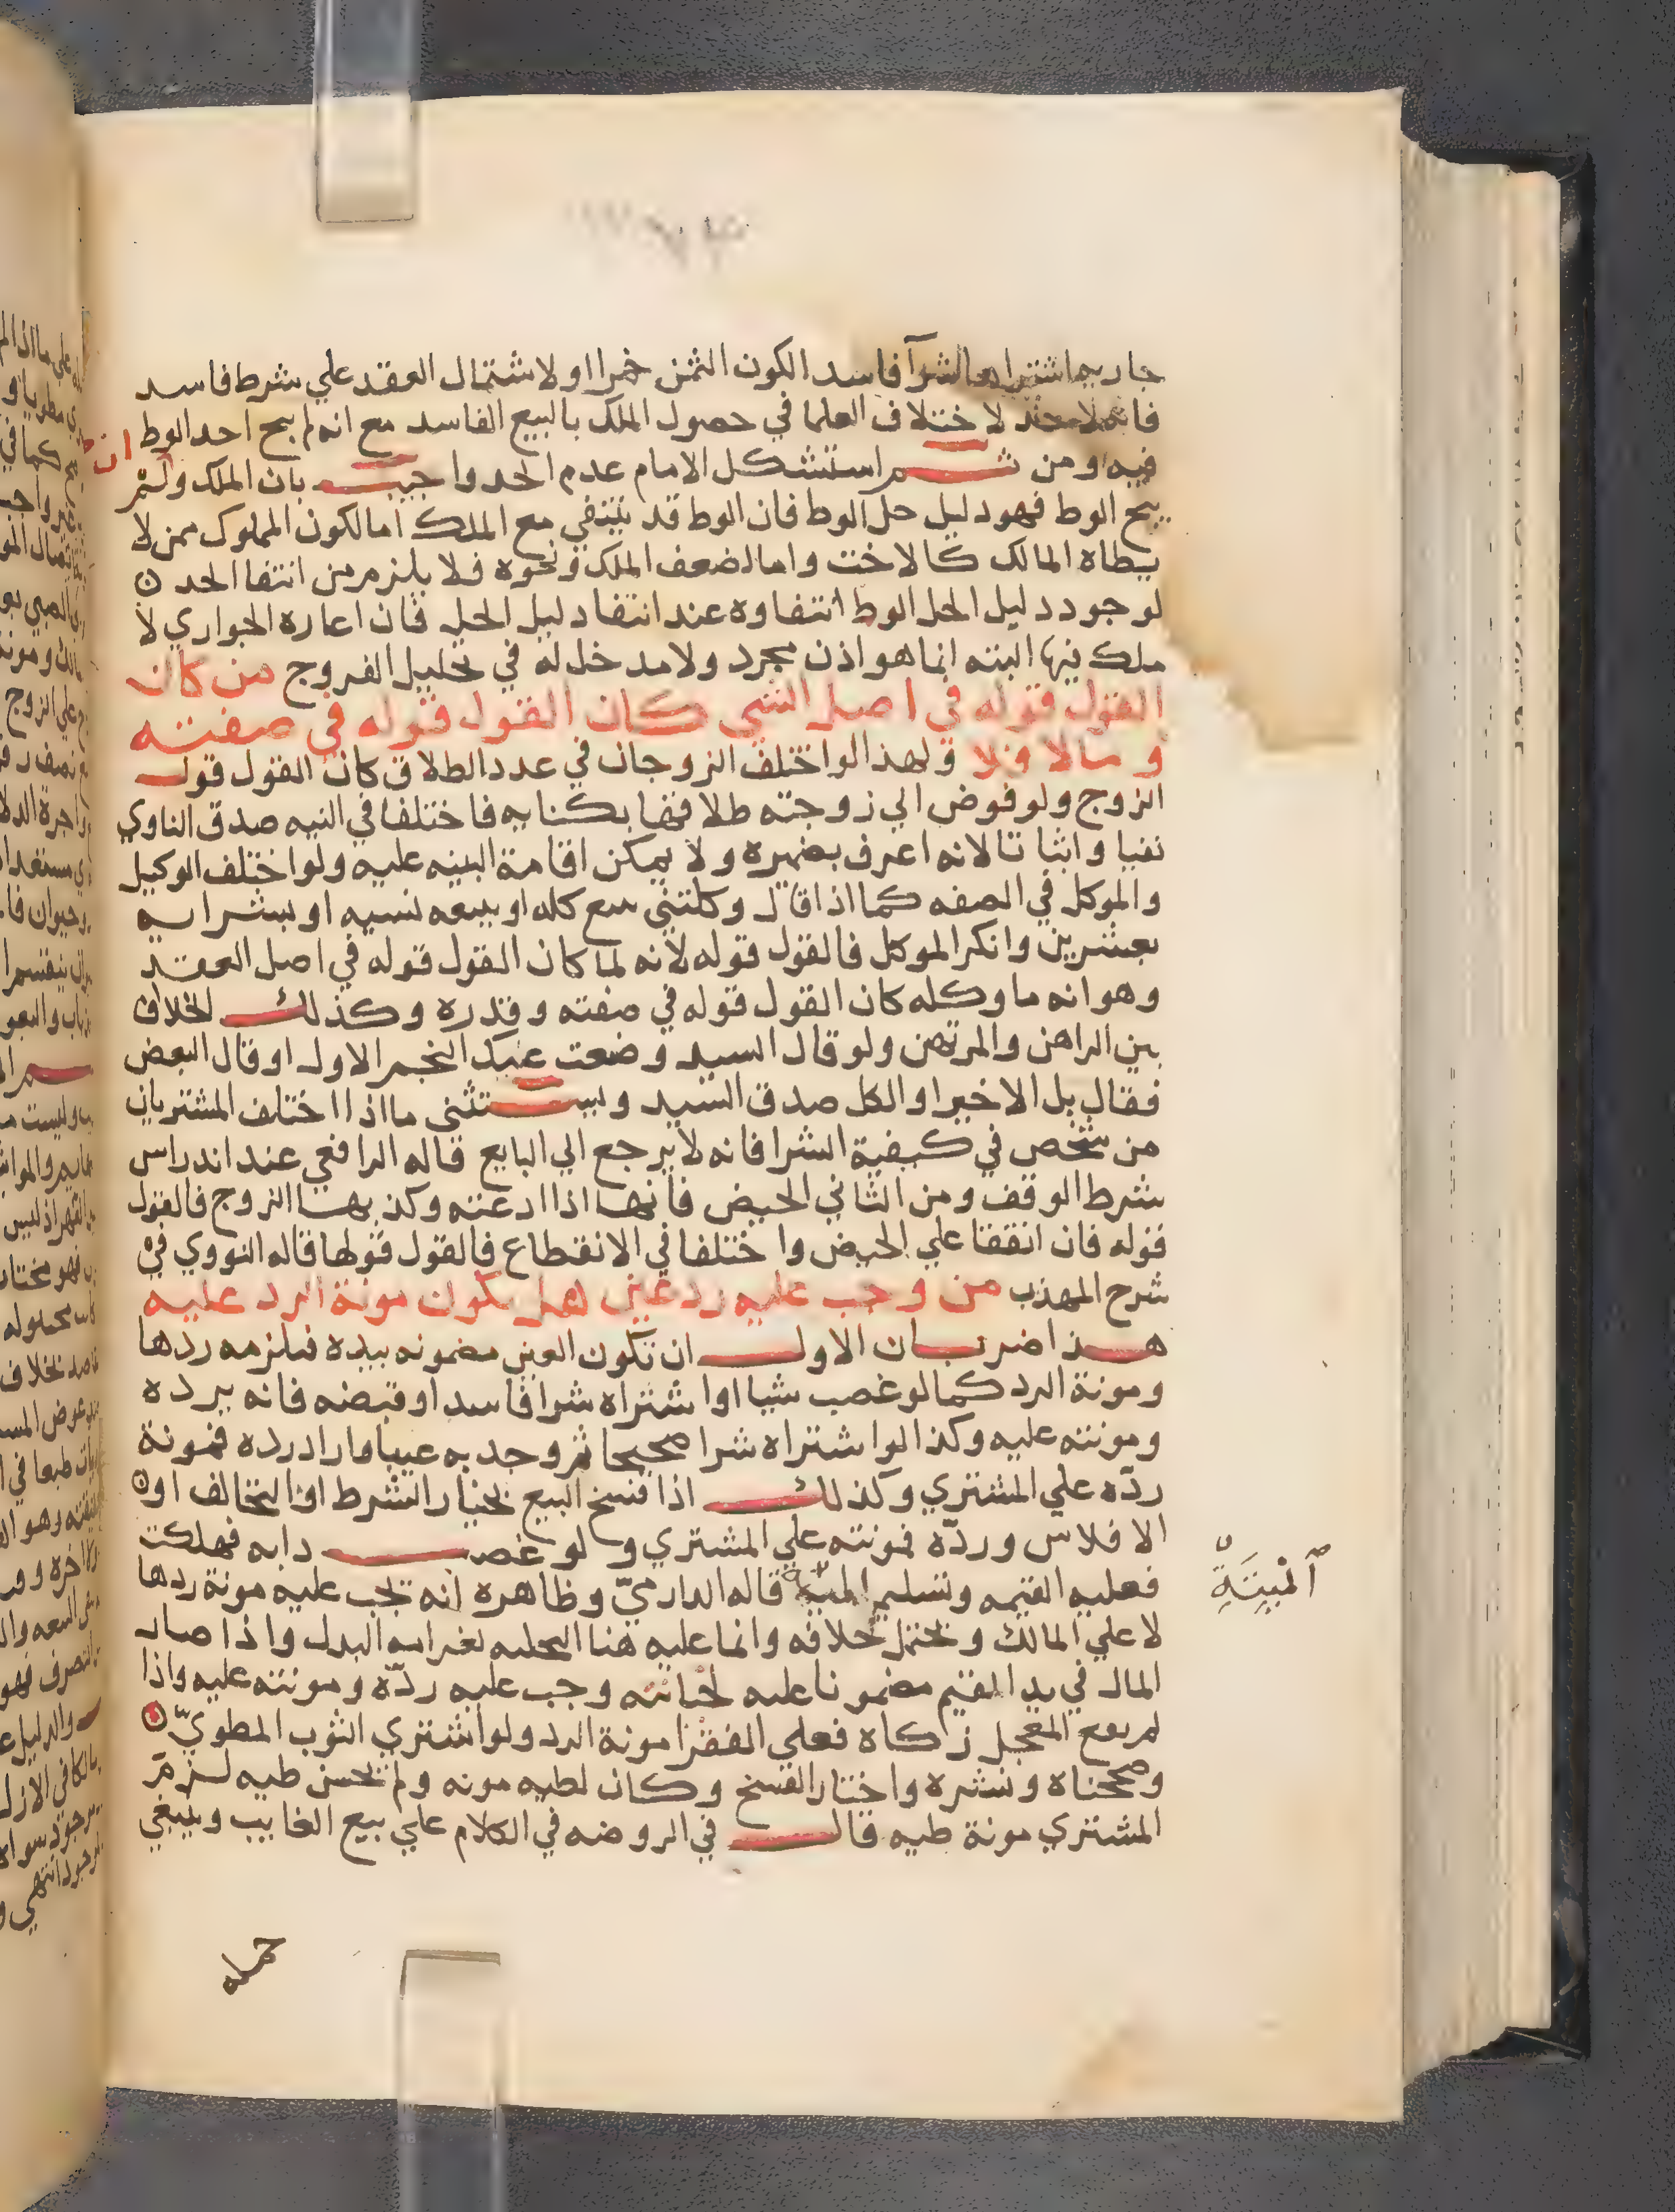 جاريه اشتراها شرآ فاسدا لكون الثمن خمرا او لاشتمال العقد علي شرط فاسد
فانه لا حد لاختلاف العلما في حصول الملك بالبيع الفاسد مع انه لم يبح احد الوط
فيه ومن ثم استشكل الامام عدم الحد واجيب بان الملك وان لم
يبح الوط فهو دليل حل الوط فان الوط قد ينتفي مع الملك اما لكون المملوك ممن لا
يطاه المالك كالاخت واما لضعف الملك ونحوه فلا يلزم من انتفا الحد
لوجود دليل الحل الوط انتفاوه عند انتفا دليل الحل فان اعارة الجواري لا
ملك فيها البته انما هو اذن مجرد ولا مدخل له في تحليل الفروج من كان
القول قوله في اصل الشي كان القول قوله في صفته
وما لا فلا ولهذا لو اختلف الزوجان في عدد الطلاق كان القول قول
الزوج ولو فوض الي زوجته طلاقها بكنايه فاختلفا في النيه صدق الناوي
نفيا واثباتا لانه اعرف بضميره ولا يمكن اقامة البينه عليه ولو اختلف الوكيل
والموكل في الصفه كما اذا قال وكلتني ببيع كله او ببيعه نسيه او بشرايه
بعشرين وانكر الموكل فالقول قوله لانه لما كان القول قوله في اصل العقد
وهو انه ما وكله كان القول قوله في صفته وقدره وكذلك الخلاف
بين الراهن والمرتهن ولو قال السيد وضعت عنك النجم الاول او قال البعض
فقال بل الاخير او الكل صدق السيد ويستثنى ما اذا اختلف المشتريان
من شخص في كيفية الشرا فانه لا يرجع الي البايع قاله الرافعي عند اندراس
شرط الوقف ومن الثاني الحيض فانها اذا ادعته وكذبها الزوج فالقول
قوله فان اتفقا علي الحيض واختلفا في الانقطاع فالقول قولها قاله النووي في
شرح المهذب من وجب عليه رد عين هل يكون مونة الرد عليه
هذا ضربان الاول ان تكون العين مضمونه بيده فيلزمه ردها
ومونة الرد كما لو غصب شيا او اشتراه شرا فاسدا وقبضه فانه يرده
ومونته عليه وكذا لو اشتراه شرا صحيحا ثم وجد به عيبا واراد رده فمونة
ردّه علي المشتري وكذلك اذا فسخ البيع بخيار الشرط او التخالف او
الافلاس وردّه فمونته علي المشتري ولو غصب دابه فهلكت
فعليه القيمه وتسليم الميتة قاله الدارميّ وظاهره انه تجب عليه مونة ردها
لا علي المالك ويحتمل خلافه وانما عليه هنا التخليه لغرامه البدل واذا صار
المال في يد القيم مضمونا عليه لخيانته وجب عليه ردّه ومونته عليه واذا
لم يقع المعجل زكاة فعلي الفقرا مونة الرد ولو اشتري الثوب المطويّ
وصححناه ونشره واختار الفسخ وكان لطيه مونه ولم يحسن طيه لزم
المشتري مونة طيه قال في الروضه في الكلام علي بيع الغايب وينبغي
ٱلْمَيتَةِ